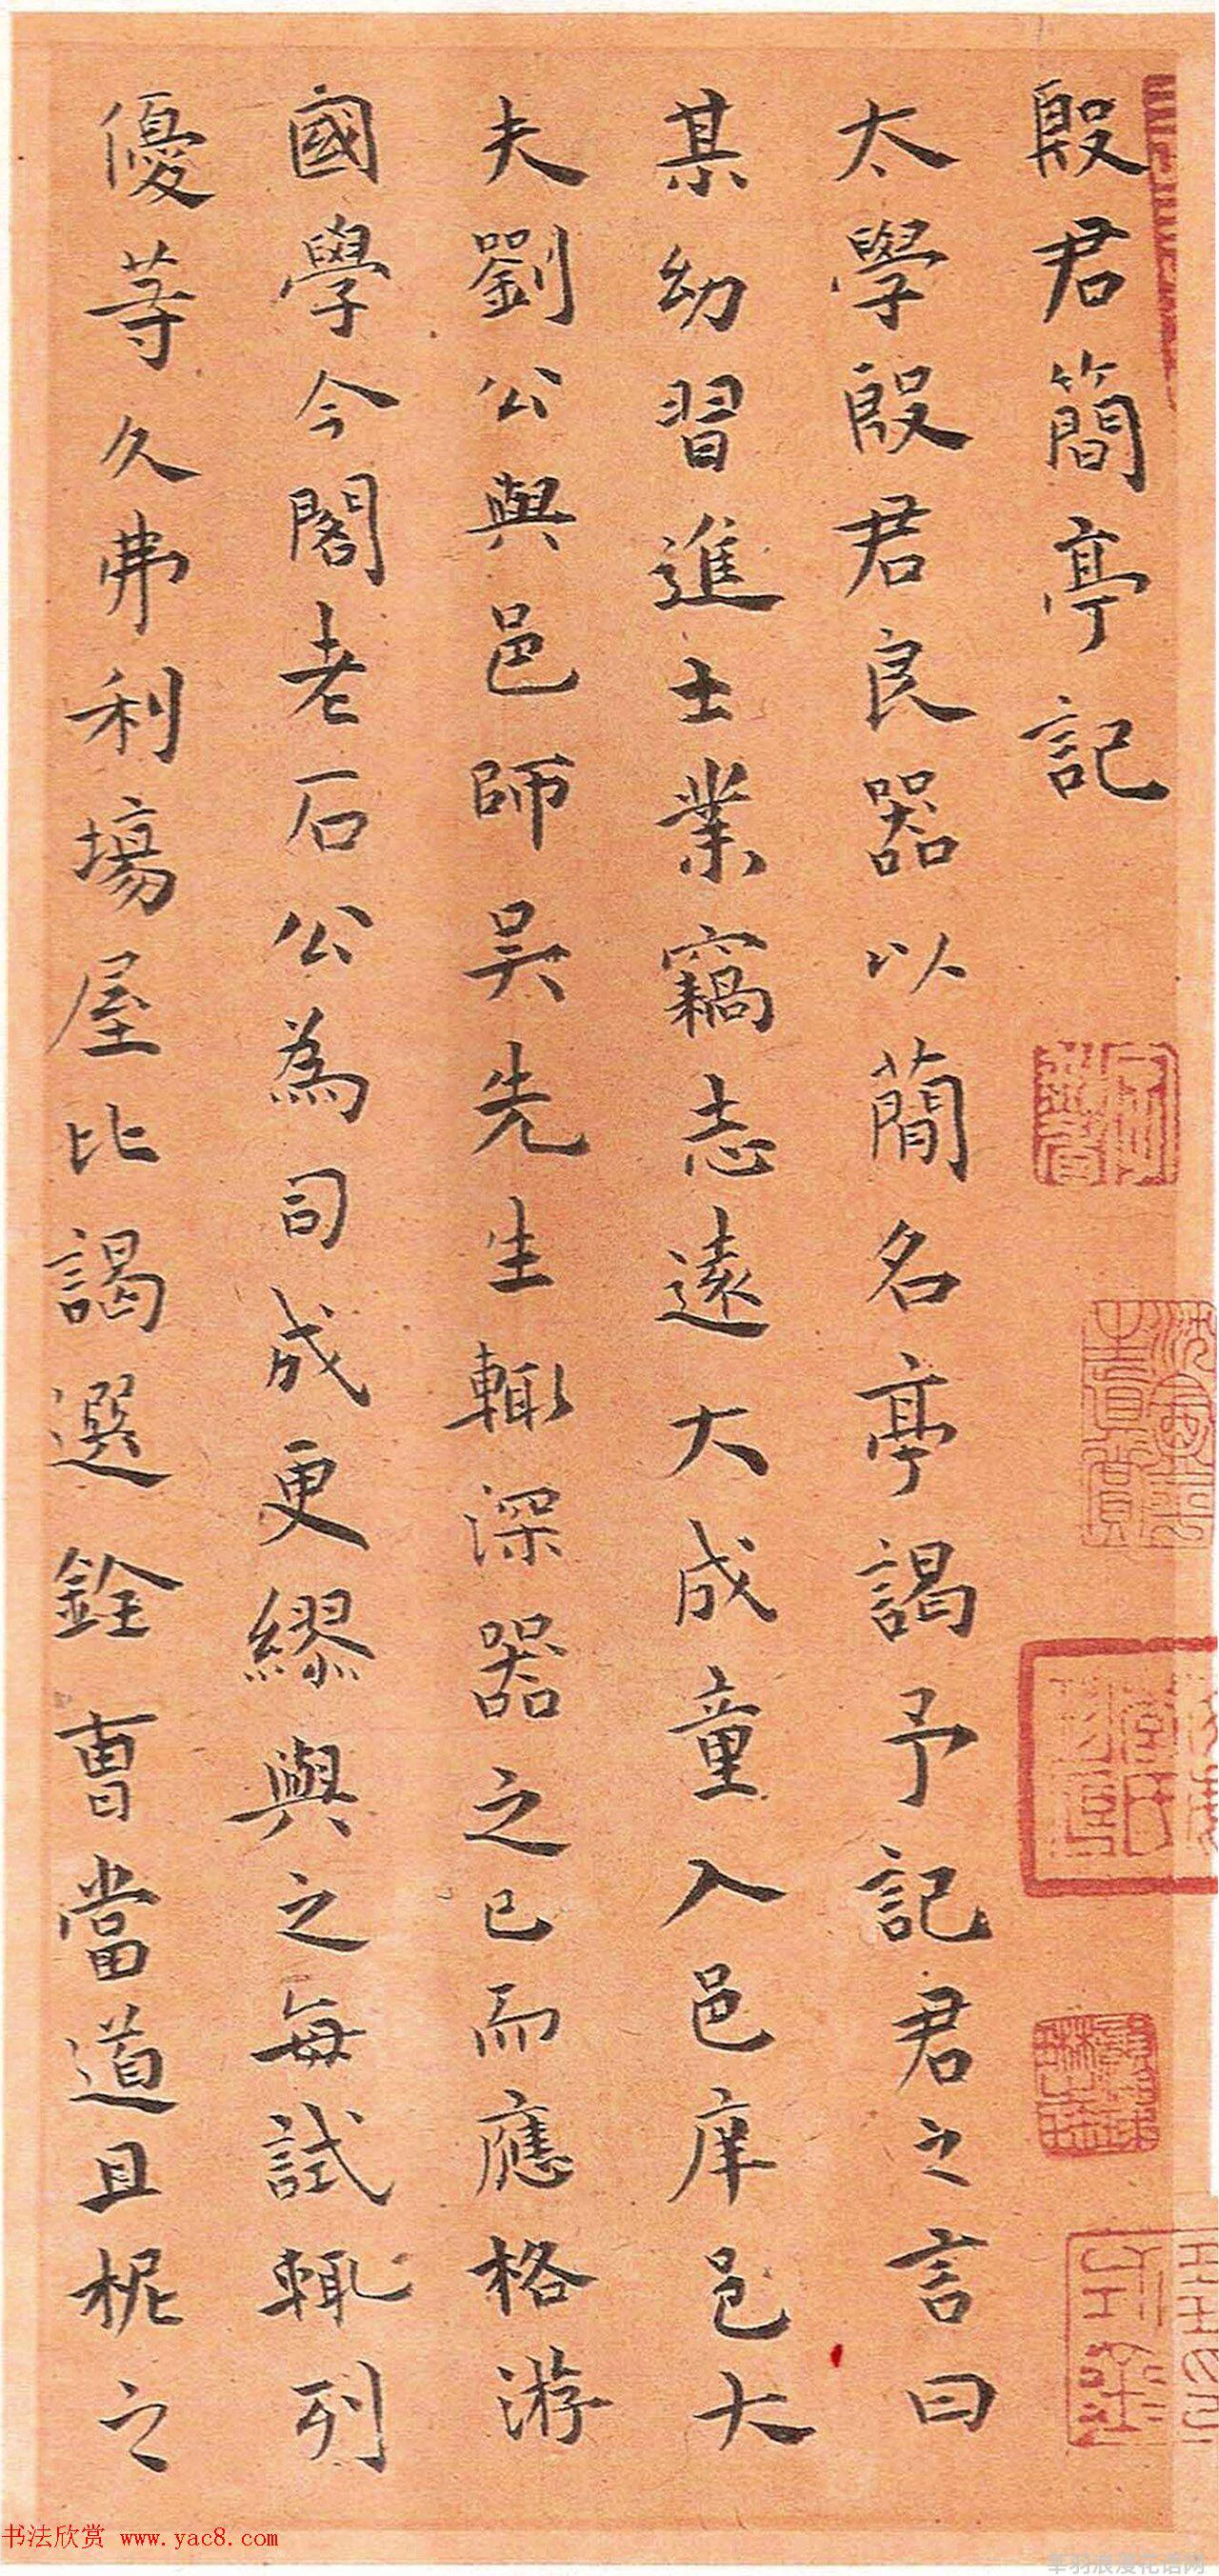 殷君簡亭記
太學殷君良器以簡名亭謁予記君之言曰
某幼習進士業竊志遠大成童入邑庠邑大
夫劉公與邑師吴先生輙深器之已而應格游
國學今閣老石公為司成更繆與之每試輙列
優等久弗利場屋比謁選銓曹當道且柅之
书法欣赏 www.yac8.com